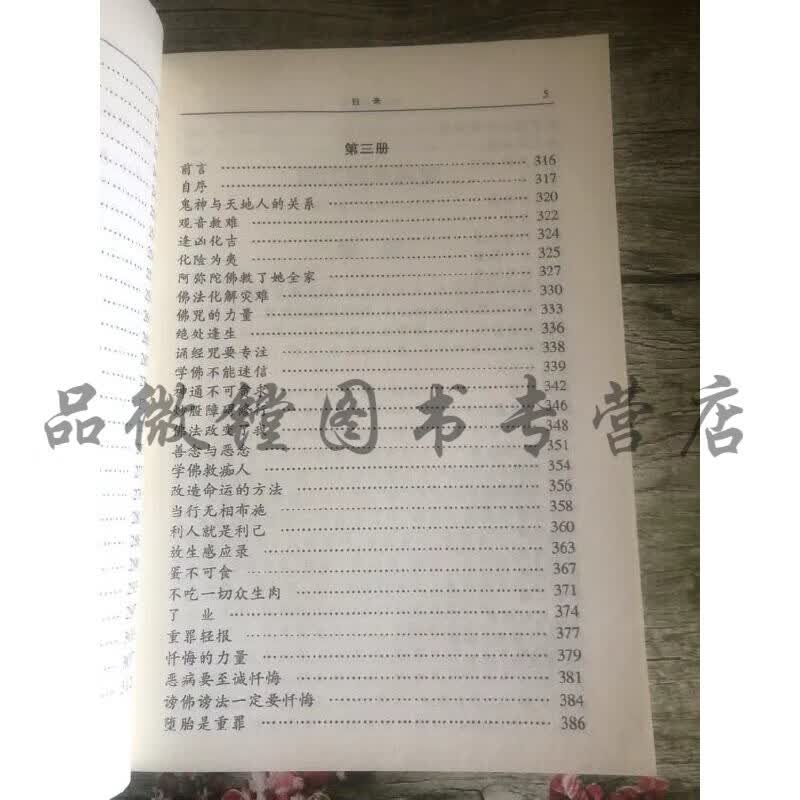 目 录 5
第三册
前言 316
自序 317
鬼神与天地人的关系 320
观音救难 322
逢凶化吉 324
化险为夷 325
阿弥陀佛救了她全家 327
佛法化解灾难 330
佛咒的力量 333
绝处逢生 336
诵经咒要专注 338
学佛不能迷信 339
神通不可贪求 342
炒股障碍修行 346
佛法改变了我 348
品微镗图书专营店
善念与恶念 351
学佛救痴人 354
改造命运的方法 356
当行无相布施 358
利人就是利己 360
放生感应录 363
蛋不可食 367
不吃一切众生肉 371
了 业 374
重罪轻报 377
忏悔的力量 379
恶病要至诚忏悔 381
谤佛谤法一定要忏悔 384
堕胎是重罪 386